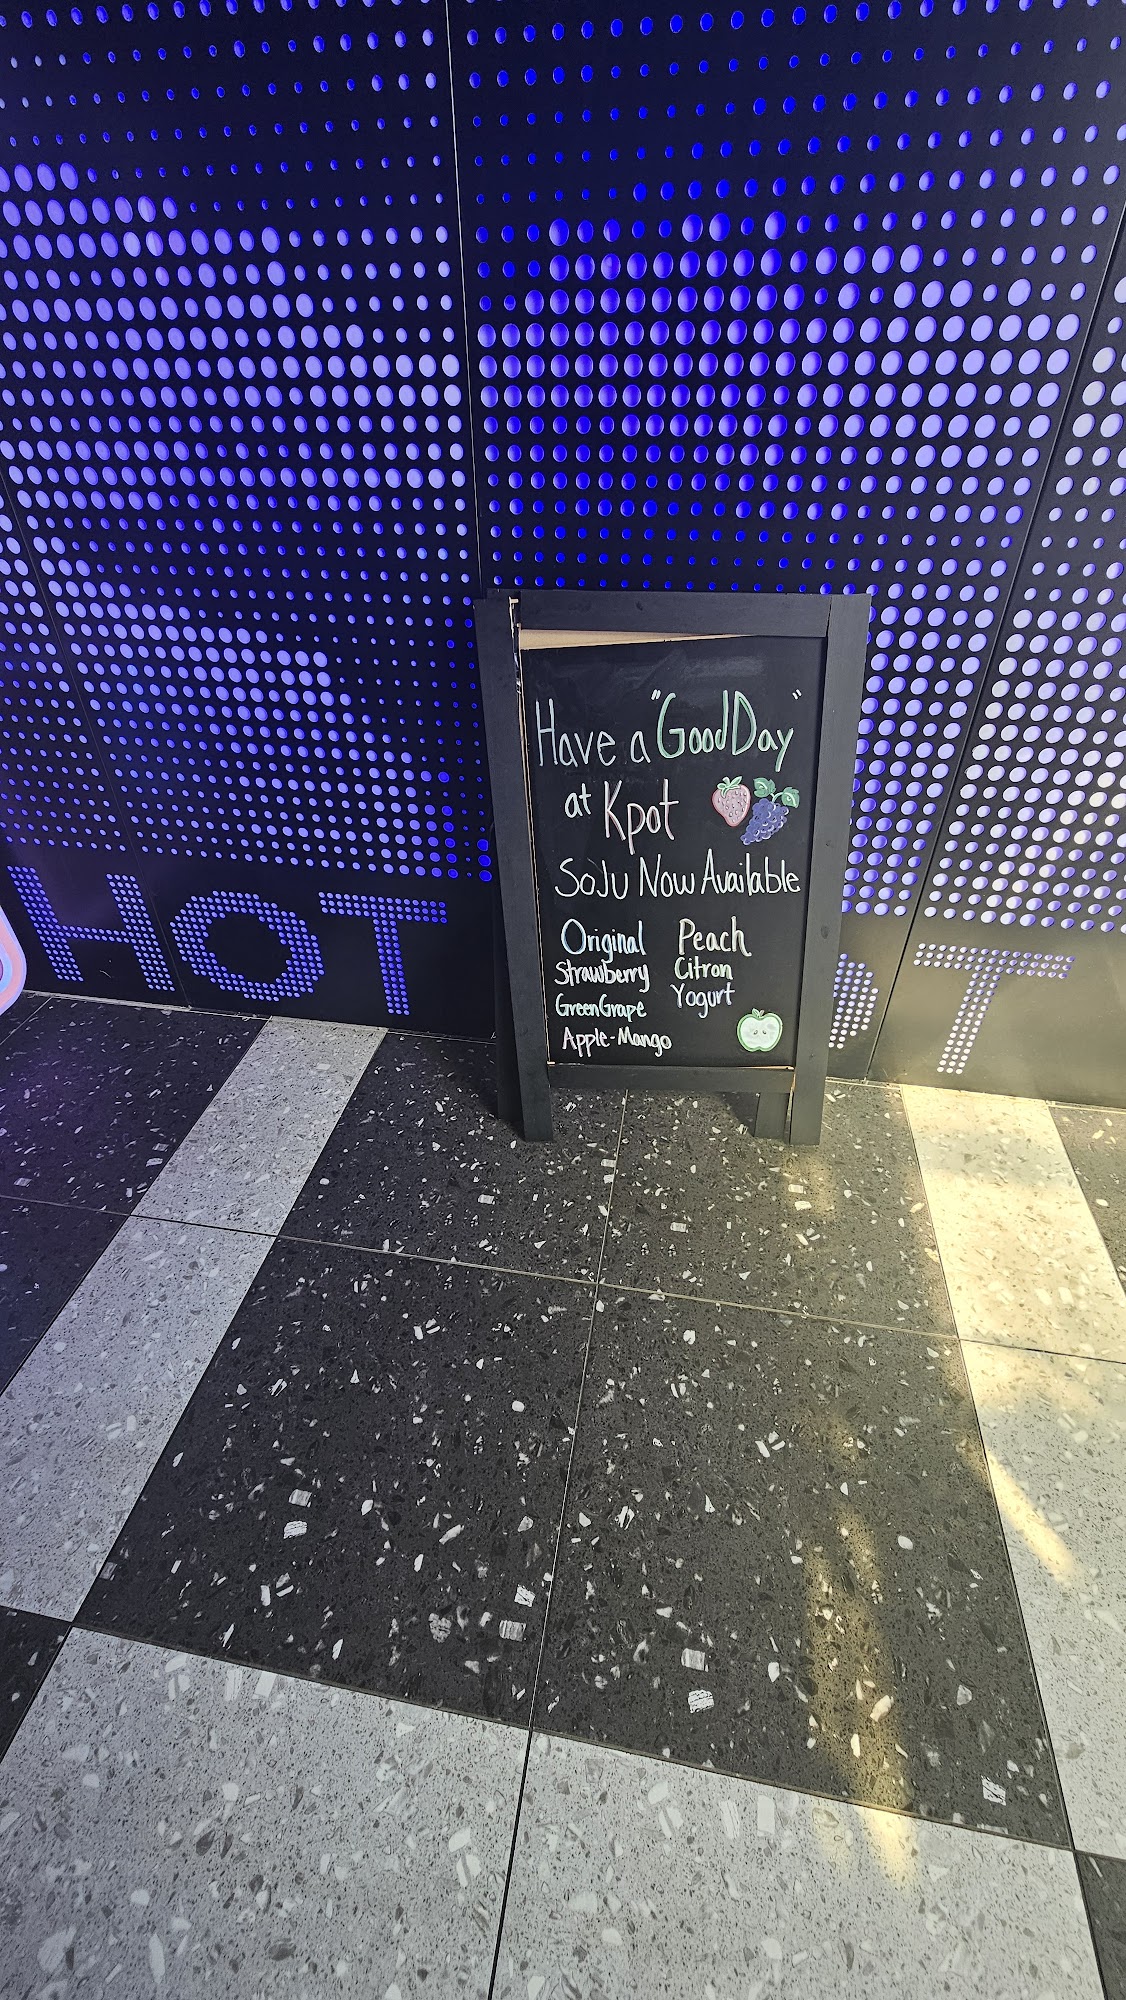 Have a "GoodDay"
at Kpot
SoJu Now Available
Original Peach
Strawberry Citron
GreenGrape Yogurt
Apple-Mango
HOT
T